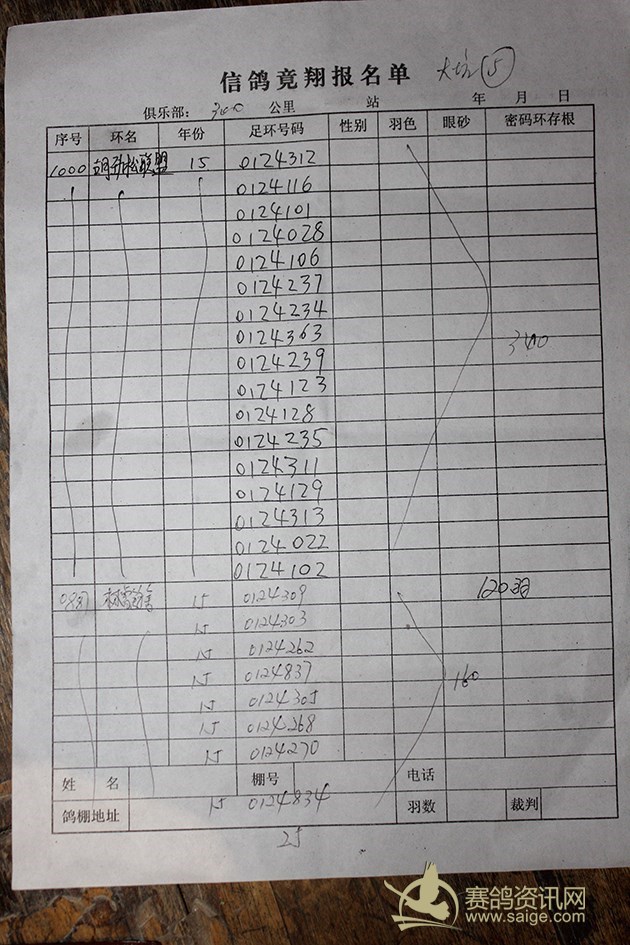 信鸽竟翔报名单 大坑 15
俱乐部: 300 公里 站 年 月 日
序号 环名 年份 足环号码 性别 羽色 眼砂 密码环存根
1000 胡劲松联盟 15 0124312
0124116
0124101
0124028
0124106
0124237
0124234
0124363
340
0124239
0124123
0124128
0124235
0124311
0124129
0124313
0124022
0124102
15 0124309 120羽
15 0124303
15 0124262
15 0124837 160
15 0124305
15 0124268
15 0124270
姓 名 棚号 电话
鸽棚地址 15 0124834 羽数 裁判
25
赛鸽资讯网
www.saige.com